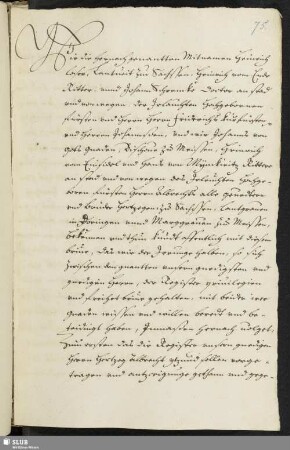 75.
Wir die hernach genantten Mitnamen Heinrich
loser, Landuoit zu Sachssen, Heinrich von Ende
Ritter, unnd Johan Schrencke Doctor an stad
und von wegen der Irlauchten Hochgebornen
fürsten und Herrn Herrn Friderichs kurfursten
und Herrn Johannssen, und wir Johanns von
gots gnaden, Bischoue zu Meissen, Heinrich
von Einsidel und Hans von Mynckwitz Rittere
an stad und von wegen des Irlauchten Hochge-
bornen fursten Herrn Albrechts alle gevettern
und bruder Hertzogen zu Sachssen, Lantgrauen
in Doringen unnd Marggrauen zu Meissen,
bekennen und thun kundt offentlich mit diesem
briue, das wir der Irrunge halben, so sich
zwischen den gnantten unsern gnedigsten und
gnedigen Herrn, der Register priuilegien
und freiheit briue gehalten, mit beider irer
gnaden wissen und willen beredt und be-
teidigt haben, Inmassen hernach volget,
zum ersten das die Register unserm gnedigen
Herrn Hertzog Albrecht itzund sollen vorge-
tragen und antzeigunge gethann und gege-